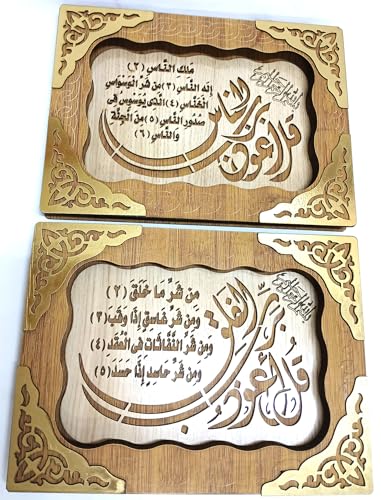 بسم الله الرحمن الرحيم
قل أعوذ برب الناس
ملك الناس (٢)
إله الناس (٣) من شر الوسواس
الخناس (٤) الذى يوسوس فى
صدور الناس (٥) من الجنة
والناس (٦)
بسم الله الرحمن الرحيم
قل أعوذ برب الفلق
من شر ما خلق (٢)
ومن شر غاسق إذا وقب (٣)
ومن شر النفاثات فى العقد (٤)
ومن شر حاسد إذا حسد (٥)